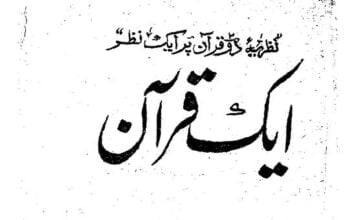 "نظریۂ دو قرآن پر ایک نظر"
ایک قرآن